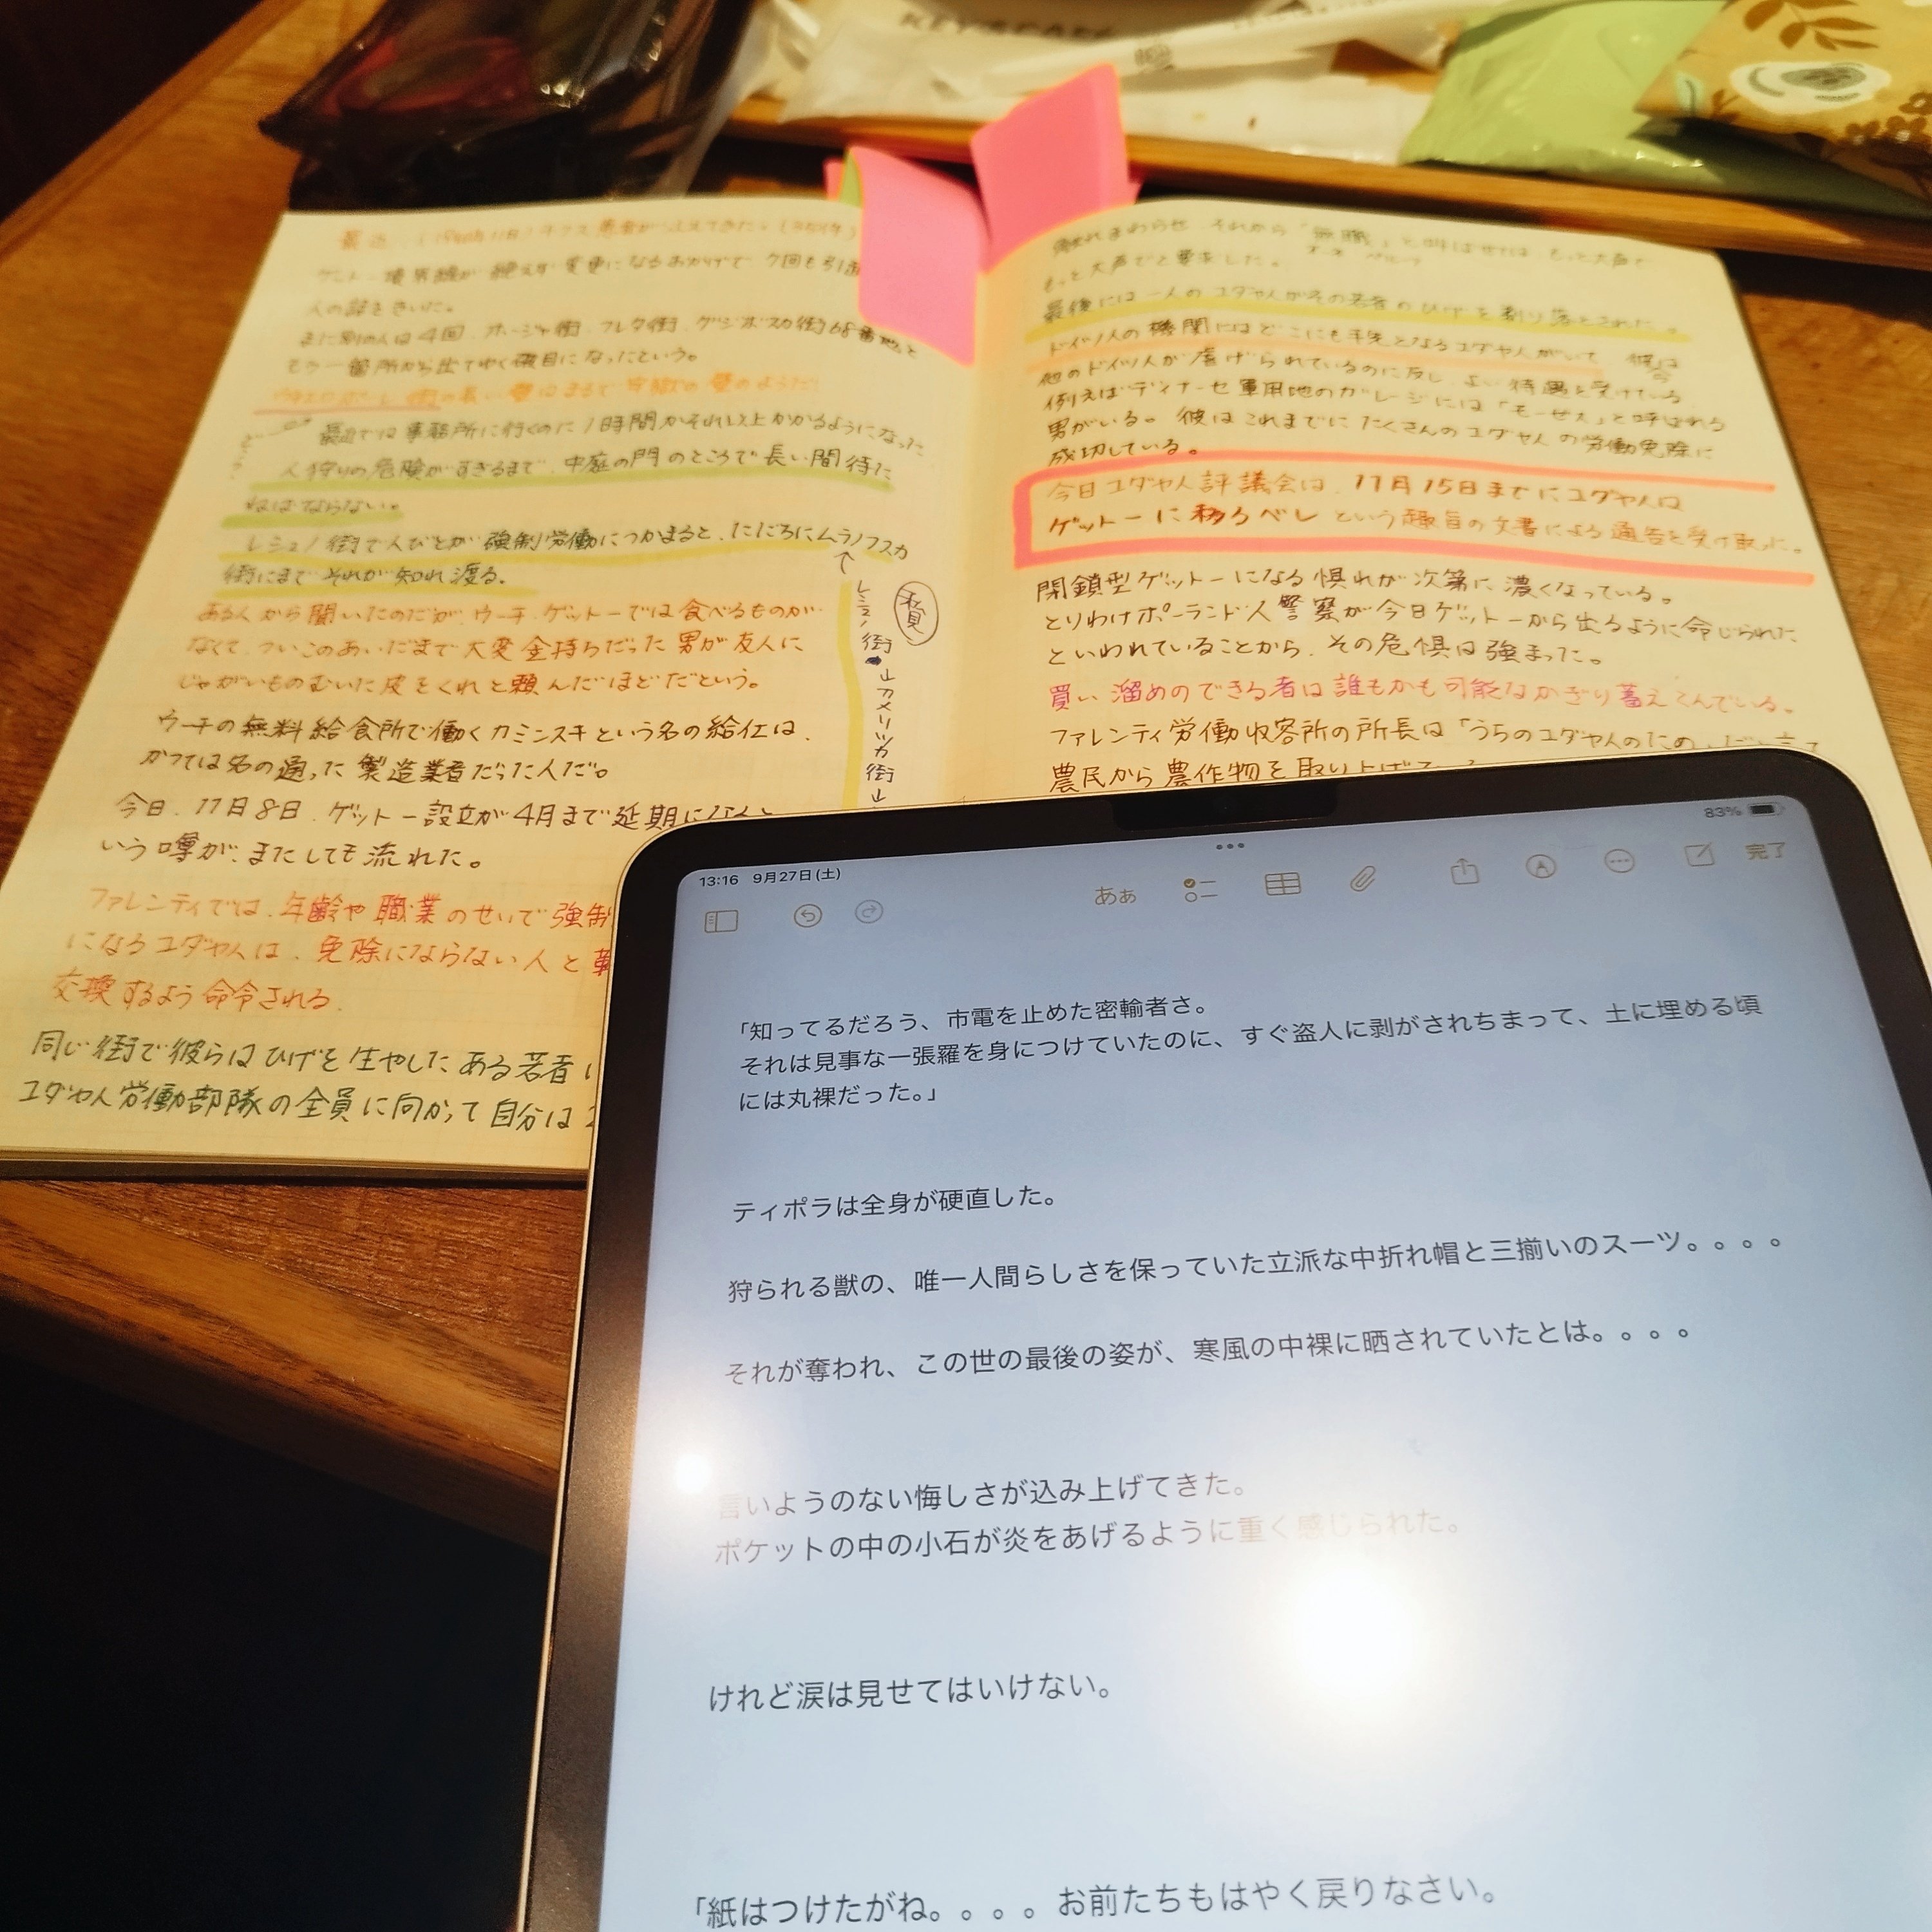 人の話をきいた。
また別の人は4回、ホージャ街、フレタ街、ゲンジボスカ街68番地と
もう一箇所から出てゆく破目になったという。
の長い壁はまるで牢獄の壁のようだ!
最近では事務所に行くのに1時間かそれ以上かかるようになった
人狩りの危険がすぎるまで、中庭の門のところで長い間待た
ねばならない。
レシュノ街で人びとが強制労働につかまると、たにどろにムラノフスカ
街にまでそれが知れ渡る。
ある人から聞いたのだが、ウーチ・ゲットーでは食べるものが
なくて、ついこのあいだまで大変金持ちだった男が友人に
じゃがいものむいた皮をくれと頼んだほどだという。
ウーチの無料給食所で働くカミンスキという名の給仕は、
かつては名の通った製造業者だった人だ。
今日、11月8日、ゲットー設立が4月まで延期になると
いう噂が、またしても流れた。
ファレンティでは、年齢や職業のせいで強制
になるユダヤ人は、免除にならない人と
交換するよう命令される.
同じ街で彼らはひげを生やしたある若者
ユダヤ人労働部隊の全員に向かって自分は
↑
レシュノ街
山カメリツカ街山
触れまわらせ、それから「無職」と叫ばせては、もっと大声で
もっと大声でと要求した。
最後には一人のユダヤ人がその若者のひげを剃り落とされた。
ドイツ人の機関にはどこにも手先となるユダヤ人がいて 彼は
他のドイツ人が虐げられているのに反し、よい待遇を受けている
例えばディナーセ軍用地のガレージには「モーゼス」と呼ばれる
男がいる。彼はこれまでにたくさんのユダヤ人の労働免除に
成功している。
今日ユダヤ人評議会は、11月15日までにユダヤ人は
ゲットーに移るベしという趣旨の文書による通告を受け取った。
閉鎖型ゲットーになる惧れが次第に濃くなっている。
とりわけポーランド人警察が今日ゲットーから出るように命じられた
といわれていることから、その危惧は強まった。
買い溜めのできる者は誰もかも可能なかぎり蓄えこんでいる。
ファレンティ労働収容所の所長は「うちのユダヤ人のため」だと言って
農民から農作物を取り上げて
13:16 9月27日(土)
83%
あぁ
完了
「知ってるだろう、市電を止めた密輸者さ。
それは見事な一張羅を身につけていたのに、すぐ盗人に剥がされちまって、土に埋める頃
には丸裸だった。」
ティポラは全身が硬直した。
狩られる獣の、唯一人間らしさを保っていた立派な中折れ帽と三揃いのスーツ。。。。
それが奪われ、この世の最後の姿が、寒風の中裸に晒されていたとは。。。。
言いようのない悔しさが込み上げてきた。
ポケットの中の小石が炎をあげるように重く感じられた。
けれど涙は見せてはいけない。
「紙はつけたがね。。。。お前たちもはやく戻りなさい。